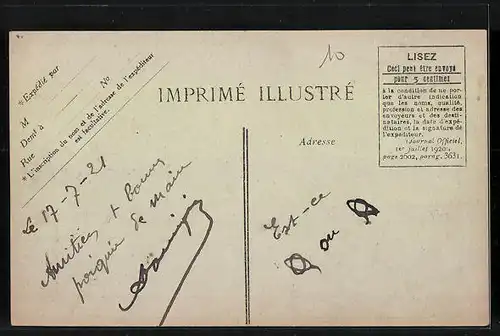 * Expédié par
M
Demt à No
Rue
* L'inscription du nom et de l'adresse de l'expéditeur
est facultative.
10
IMPRIMÉ ILLUSTRÉ
Adresse
LISEZ
Ceci peut être envoyé
pour 5 centimes
à la condition de ne por-
ter d'autre indication
que les noms, qualité,
profession et adresse des
envoyeurs et des desti-
nataires, la date d'expé-
dition et la signature de
l'expéditeur.
(Journal Officiel,
1er juillet 1920,
page 2002, parag. 3631.
Le 17-7-21
Amitiés + bonne
poignée de main
Est-ce
ou